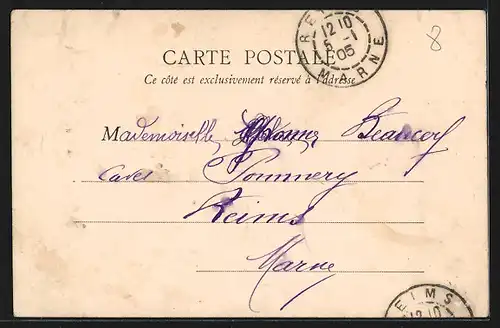 8
RE
12 10
5 -1
05
MARNE
CARTE POSTALE
Ce côté est exclusivement réservé à l'adresse
Mademoiselle Beaucorf
Caves Pommery
Reims
Marne
EIMS
12 10